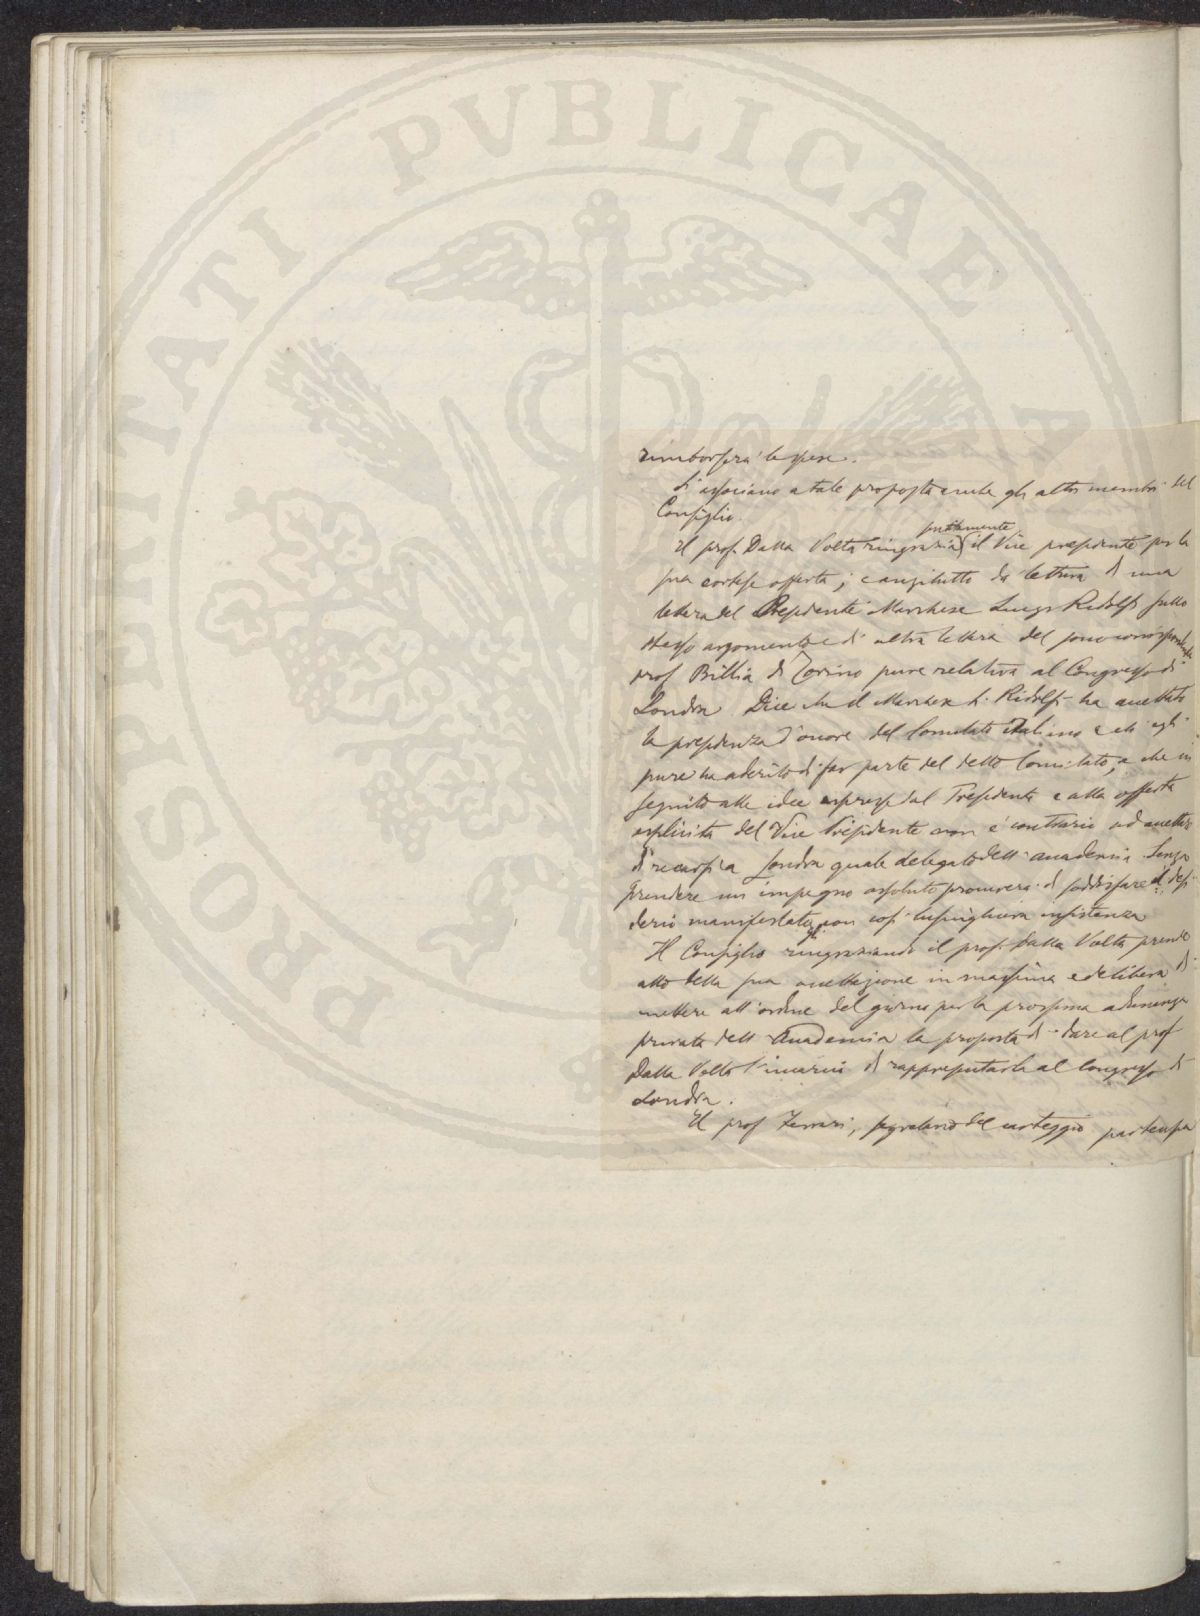 PROSPERITATI PVBLICAE A
rimborserà le spese.
Si associano a tale proposta anche gli altri membri del
Consiglio.
Il prof. Dalla Volta ringrazia sentitamente il Vice presidente per la
sua cortese offerta; e anzitutto dà lettura di una
lettera del Presidente Marchese Luigi Ridolfi sullo
stesso argomento e di altra lettera del socio corrispondente
prof Billia di Torino pure relativa al Congresso di
Londra. Dice che il Marchese L. Ridolfi ha accettato
la presidenza d'onore del Comitato italiano e ch'egli
pure ha aderito di far parte del detto Comitato, e che in
seguito alle idee espresse dal Presidente e alla offerta
esplicita del Vice Presidente non è contrario ad accettare
di recarsi a Londra quale delegato dell'accademia. Senza
prendere un impegno assoluto procurerà di soddisfare il desi
derio manifestatogli con così lusinghiera insistenza
Il Consiglio ringraziando il prof. Dalla Volta prende
atto della sua accettazione in massima e delibera di
mettere all'ordine del giorno per la prossima adunanza
privata dell'Accademia la proposta di dare al prof
Dalla Volta l'incarico di rappresentarla al Congresso di
Londra.
Il prof Ferrari, segretario del carteggio partecipa